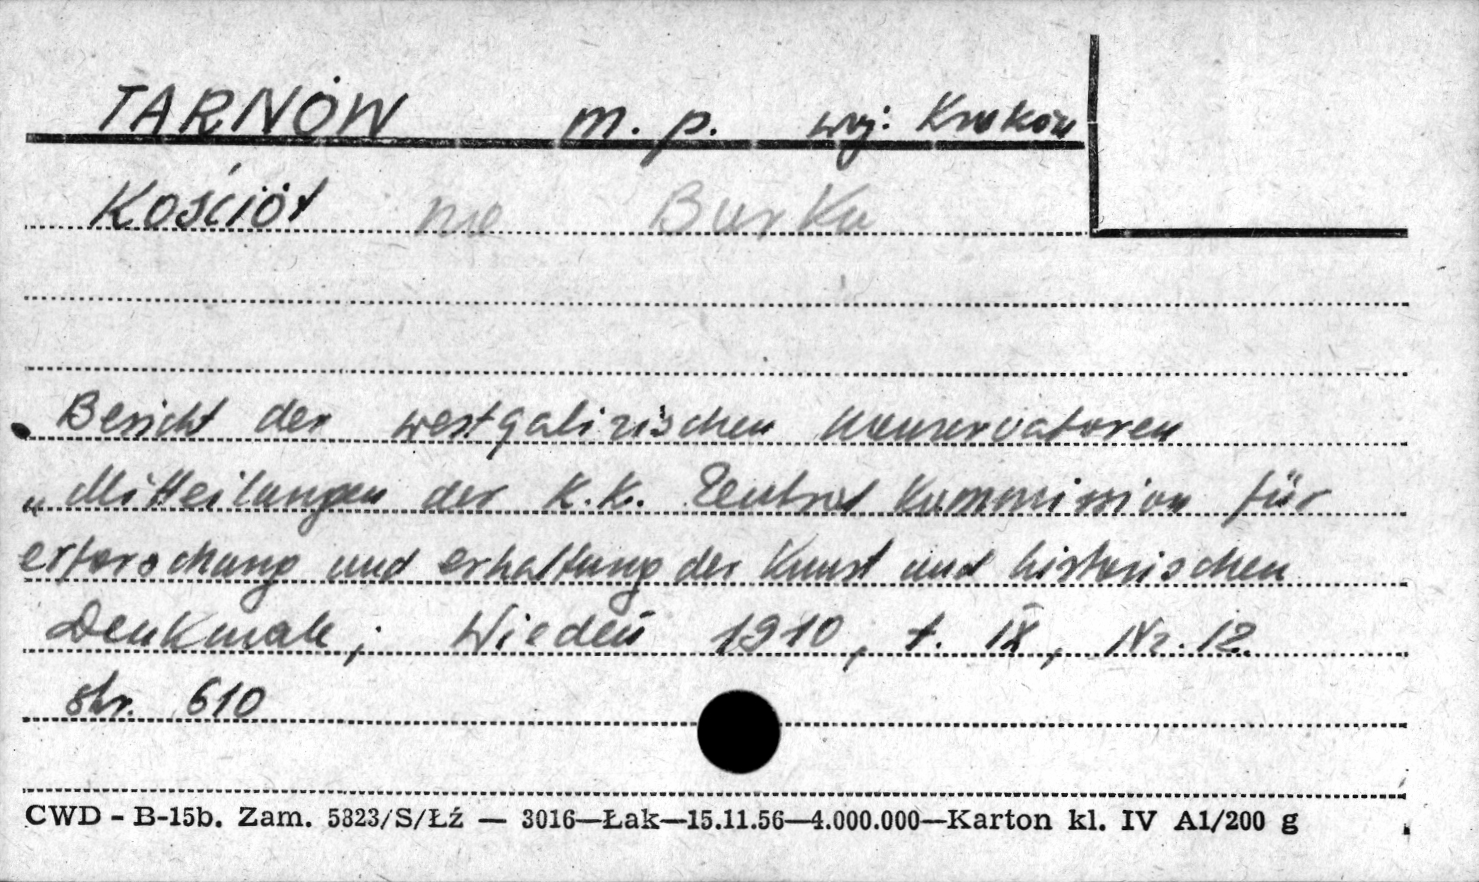 TARNÓW m. p. woj: Kraków
Kościół na Burku
Bericht der westgalizischen Konservatoren
„Mitteilungen der K.K. Zentral Kommission für
erforschung und erhaltung der Kunst und historischen
Denkmale; Wiedeń 1910, t. IX, Nr. 12.
str. 610
CWD - B-15b. Zam. 5323/S/Łź — 3016—Łak—15.11.56—4.000.000—Karton kl. IV A1/200 g